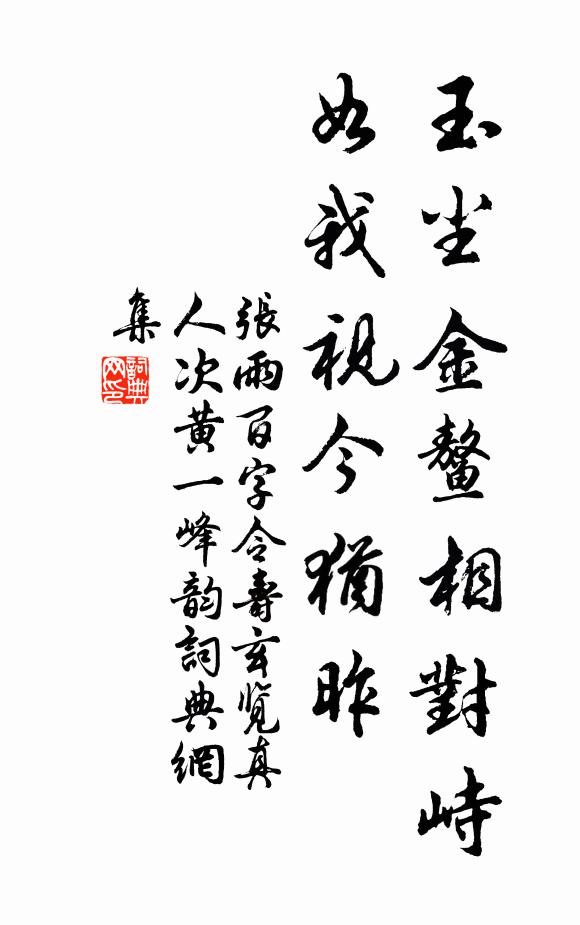 玉坐金鳌相對峙
如我視今猶昨
張雨百字令壽玄览真
人次黄一峰韵詞典網
集
詞典
网印